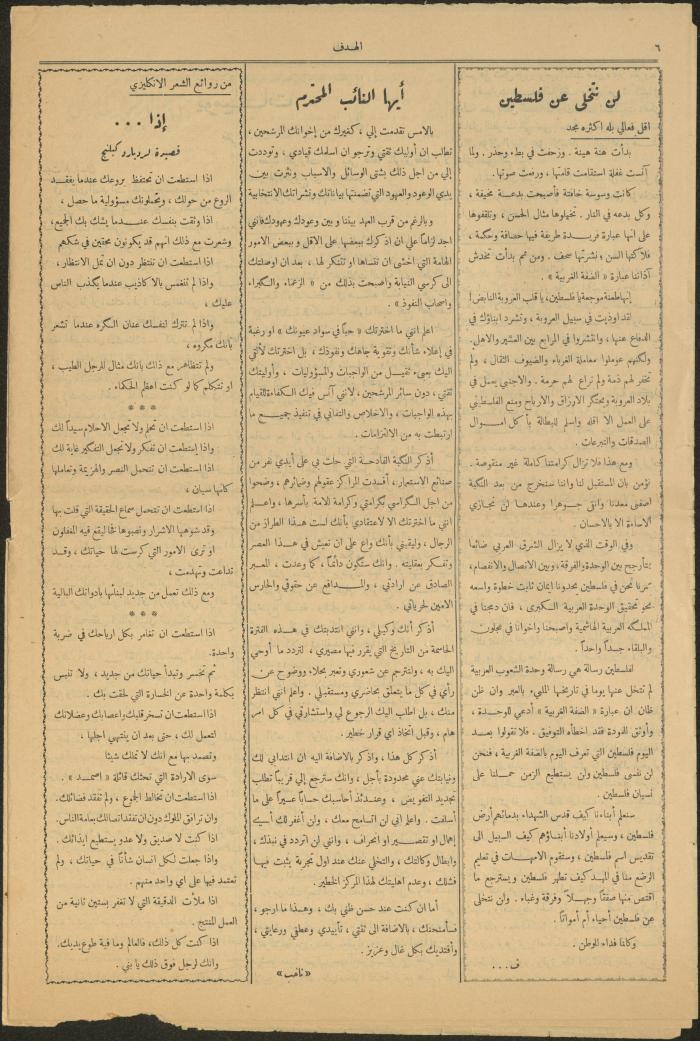 ٦
الهدف
لن نتخلى عن فلسطين
اقل فعالي بله اكثره مجد
بدأت هنة هينة . وزحفت في بطء وحذر . ولما
آنست غفلة استقامت قامتها ، ورفعت صوتها .
كانت وسوسة خافتة فأصبحت بدعة مخيفة ،
وكل بدعه في النار . تخيلوها مثال الحسن ، وتلقفوها
على انها عبارة فريدة طريفة فيها حصافة وحكمة ،
فلاكتها السن ونشرتها سحف . ومن ثم بدأت تخدش
آذاننا عبارة « الضفة الغربية » .
إنها طعنة موجعة يا فلسطين، يا قلب العروبة النابض!
لقد اوذيت في سبيل العروبة ، وتشرد ابناؤك في
الدفاع عنها، وانتشروا في المرابع بين العشير والاهل.
ولكنهم عوملوا معاملة الغرباء والضيوف الثقال ، ولم
تخفر لهم ذمة ولم تراع لهم حرمة . والاجنبي يعمل في
بلاد العروبة ويحتكر الارزاق والارباح ومنع الفلسطيني
على العمل الا اقله واسلم للبطالة يأكل امـوال
الصدقات والتبرعات .
ومع هذا فلا تزال كرامتنا كاملة غير منقوصة .
نؤمن بأن المستقبل لنا واننا سنخرج من بعد النكبة
اصفى معدناً وانقى جوهرا وعندها لن نجازي
الاساءة الا بالاحسان .
وفي الوقت الذي لا يزال الشرق العربي ضائعا
يتأرجح بين الوحدة والفرقة، وبين الاتصال والانفصام،
سرنا نحن في فلسطين يحدونا ايمان ثابت خطوة واسعه
نحو تحقيق الوحدة العربية الكبرى ، فان دمجنا في
المملكه العربية الهاشمية واصبحنا واخوانا في عجلون
والبلقاء جسداً واحداً .
لفلسطين رسالة هي رسالة وحدة الشعوب العربية
لم تتخل عنها يوما في تاريخها المليء بالعبر وان ظن
ظان ان عبارة « الضفة الغربية » أدعي للوحدة ،
وأوثق للمودة فقد اخطأه التوفيق . فلا تقولوا بعد
اليوم فلسطين التي تعرف اليوم بالضفة الغربية ، فنحن
لن ننسى فلسطين ولن يستطيع الزمن حملنا على
نسيان فلسطين .
سنعلم أبناءنا كيف قدس الشهداء بدمائهم أرض
فلسطين ، وسيعلم أولادنا أبناؤهم كيف السبيل الى
تقديس اسم فلسطين ، وستقوم الامهات في تعليم
الرضع منا في المهد كيف تطهر فلسطين ويسترجع ما
اقتص منها صفقاً وجهلاً وفرقة وغباء . ولن نتخلى
عن فلسطين أحياء أم أمواتاً .
وكلنا فداء للوطن .
ف . . .
أيها النائب المحترم
بالامس تقدمت إلي ، كغيرك من إخوانك المرشحين ،
تطالب ان أوليك ثقتي وترجو ان اسلمك قيادي ، وتوددت
إلي من اجل ذلك بشتى الوسائل والاسباب ونثرت بين
يدي الوعود والعهود التي تضمنتها بياناتك ونشراتك الانتخابية
وبالرغم من قرب العهد بيننا وبين وعودك وعهودك فانني
اجد لزاماً علي ان اذكرك ببعضها على الاقل وببعض الامور
الهامة التي اخشى ان تنساها او تتنكر لها ، بعد ان اوصلتك
الى كرسي النيابة واصبحت بذلك من « الزعماء والكبراء
واصحاب النفوذ » .
اعلم انني ما اخترتك « حباً في سواد عيونك » او رغبة
في إعلاء شأنك وتقوية جاهك ونفوذك ، بل اخترتك لألقي
اليك بعبء ثقيل من الواجبات والمسؤوليات ، وأوليتك
ثقتي ، دون سائر المرشحين ، لانني آنس فيك الكفاءة للقيام
بهذه الواجبات ، والاخلاص والتفاني في تنفيذ جميع ما
ارتبطت به من الالتزامات .
أذكر النكبة الفادحة التي حلت بي على أيدي نفر من
صنائع الاستعمار ، أفسدت المراكز عقولهم وضمائرهم ، وضحوا
من اجل الكراسي بكرامتي وكرامة الامة بأسرها ، واعلم
انني ما اخترتك الا لاعتقادي بأنك لست هذا الطراز من
الرجال ، وليقيني بأنك واع على ان تعيش في هذا العصر
وتفكر بعقليته . وانك ستكون دائماً ، كما وعدت ، المعبر
الصادق عن ارادتي ، والمدافع عن حقوقي والحارس
الامين لحرياتي .
أذكر أنك وكيلي ، وانني انتدبتك في هذه الفترة
الحاسمة من التاريخ التي يقرر فيها مصيري ، لتردد ما أوحي
اليك به ، ولتترجم عن شعوري وتعبر بجلاء ووضوح عن
رأي في كل ما يتعلق بحاضري ومستقبلي . واعلم انني انتظر
منك ، بل اطلب اليك الرجوع لي واستشارتي في كل امر
هام ، وقبل اتخاذ اي قرار خطير .
أذكر كل هذا ، واذكر بالاضافة اليه ان انتدابي لك
ونيابتك عني محدودة بأجل ، وانك سترجع إلي قريباً تطلب
تجديد التفويض ، وعندئذ أحاسبك حساباً عسيراً على ما
أسلفت . واعلم اني لن اتسامح معك ، ولن أغفر لك أي
إهمال او تقصير او انحراف ، وانني لن اتردد في نبذك ،
وابطال وكالتك ، والتخلي عنك عند اول تجربة يثبت فيها
فشلك ، وعدم اهليتك لهذا المركز الخطير .
أما ان كنت عند حسن ظني بك ، وهذا ما ارجو ،
فسأمنحك ، بالاضافة الى ثقتي ، تأييدي وعطفي ورعايتي ،
وأفتديك بكل غال وعزيز .
« ناخب »
من روائع الشعر الانكليزي
إذا . . .
قصيدة لرديارد كبلنج
اذا استطعت ان تحتفظ بروعك عندما يفقد
الروع من حولك ، ويحملونك مسؤولية ما حصل ،
اذا وثقت بنفسك عندما يشك بك الجميع،
وشعرت مع ذلك انهم قد يكونون محقين في شكهم
اذا استطعت ان تنتظر دون ان تمل الانتظار ،
واذا لم تنغمس بالاكاذيب عندما يكذب الناس
عليك ،
واذا لم تترك لنفسك عنان الكره عندما تشعر
بانك مكروه ،
ولم تتظاهر مع ذلك بانك مثال للرجل الطيب ،
او تتكلم كما لو كنت اعظم الحكماء .
* * *
اذا استطعت ان تحلم ولا تجعل الاحلام سيداً لك
واذا استطعت ان تفكر ولا تجعل التفكير غاية لك
اذا استطعت ان تتحمل النصر والهزيمة وتعاملها
كأنهما سيان ،
اذا استطعت ان تتحمل سماع الحقيقة التي قلت بها
وقد شوهها الاشرار ونصبوها فخا ليقع فيه المغفلون
او ترى الامور التي كرست لها حياتك ، وقد
تداعت وتهدمت ،
ومع ذلك تعمل من جديد لبنائها بادواتك البالية
* * *
اذا استطعت ان تغامر بكل ارباحك في ضربة
واحدة.
ثم تخسر وتبدأ حياتك من جديد ، ولا تنبس
بكلمة واحدة عن الخسارة التي لحقت بك .
اذا استطعت ان تسخر قلبك واعصابك وعضلاتك
لتعمل لك ، حتى بعد ان ينتهي اجلها ،
وتصمد بها مع انك لا تملك شيئا
سوى الارادة التي تحثك قائلة « اصمد » .
اذا استطعت ان تخالط الجموع ، ولم تفقد فضائلك.
وان ترافق الملوك دون ان تفقد اتصالك بعامة الناس.
اذا كنت لا صديق ولا عدو يستطيع ايذائك .
واذا جعلت لكل انسان شأناً في حياتك ، ولم
تعتمد فيها على اي واحد منهم .
اذا ملأت الدقيقة التي لا تغفر بستين ثانية من
العمل المنتج .
اذا كنت كل ذلك، فالعالم وما فيه طوع يديك.
وانك لرجل فوق ذلك يا بني .